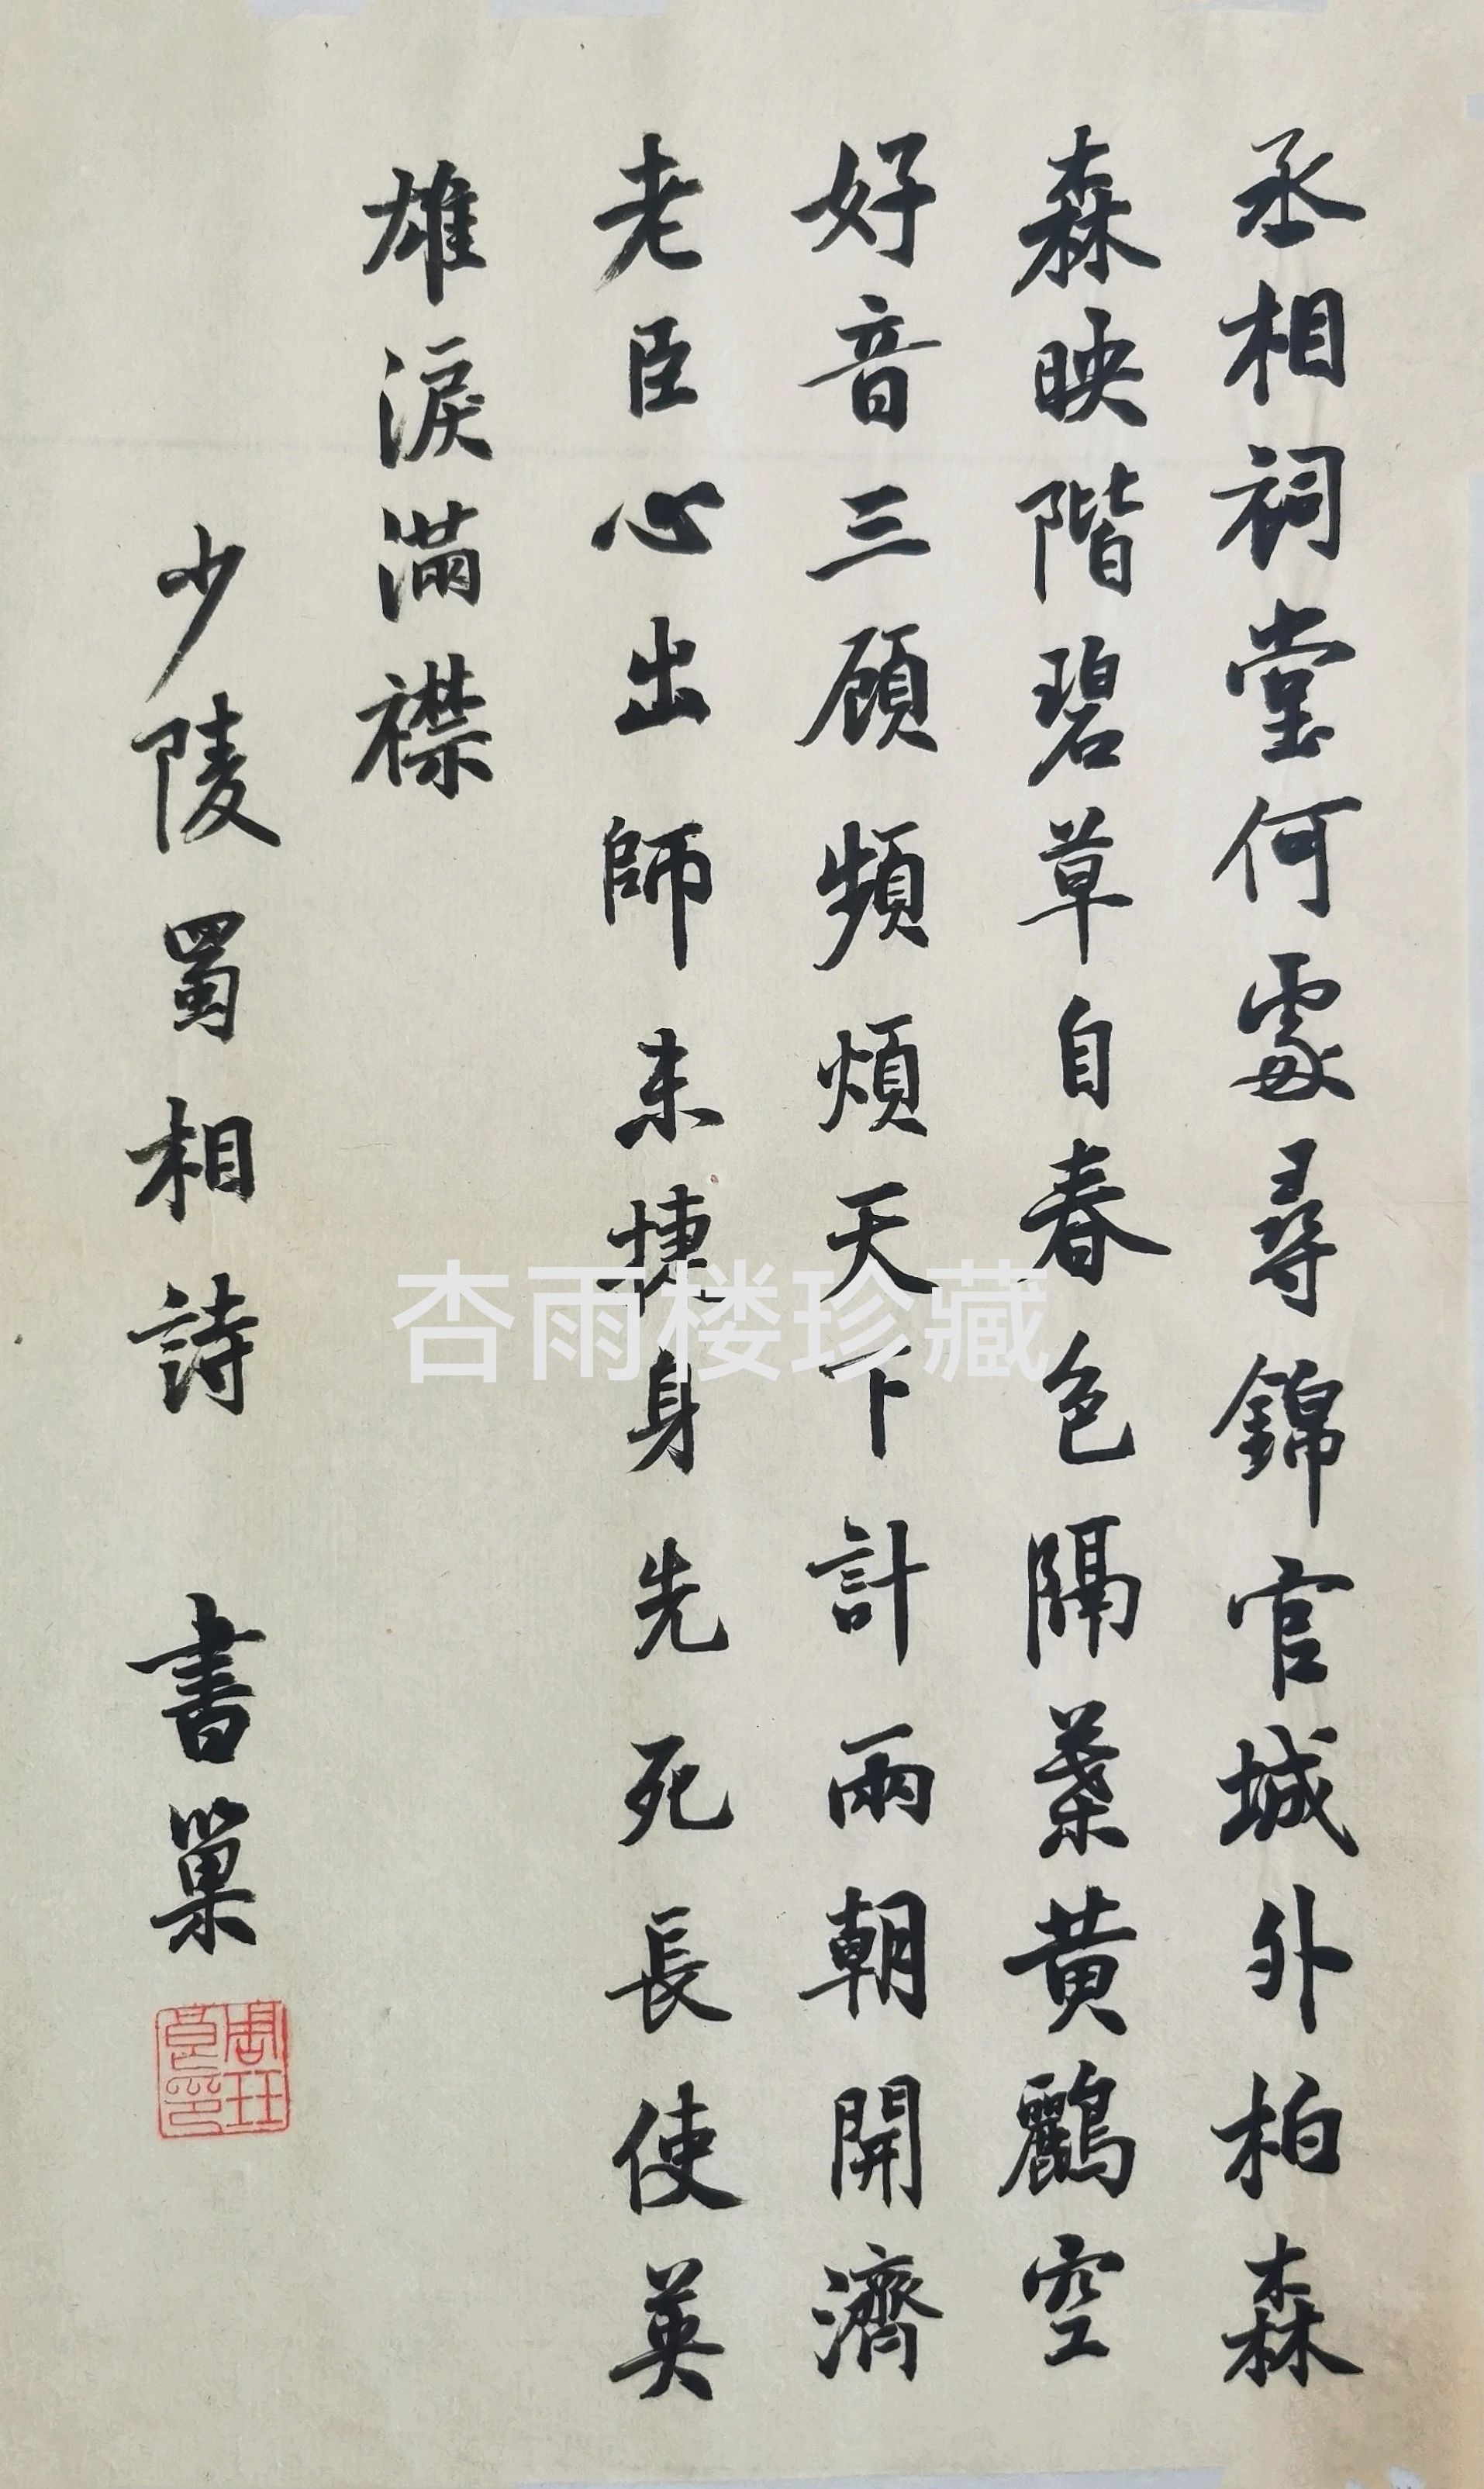 丞相祠堂何處尋錦官城外柏森
森映階碧草自春色隔葉黄鸝空
好音三顧頻煩天下計兩朝開濟
老臣心出師未捷身先死長使英
雄淚滿襟
少陵蜀相詩 書巢
杏雨楼珍藏